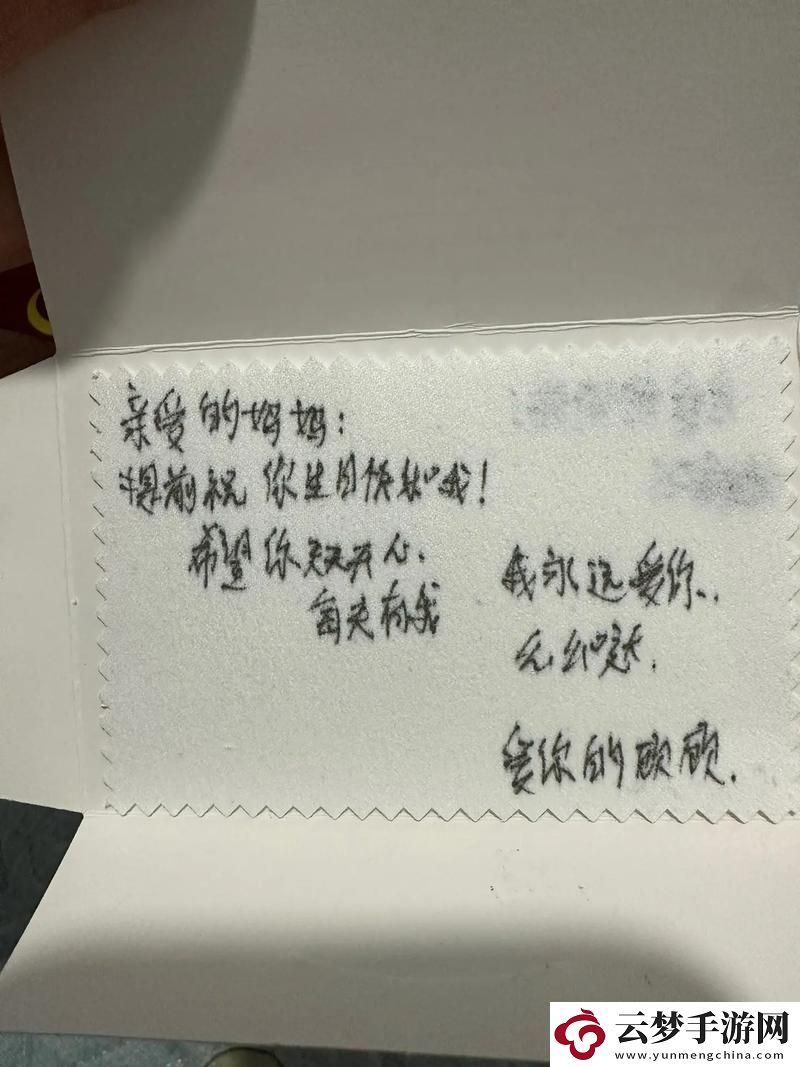 亲爱的妈妈：
提前祝你生日快乐哦！
希望你天天开心、
每天有我
我永远爱你、
爱你的顾顾.
云梦手游网
www.yunmengchina.com